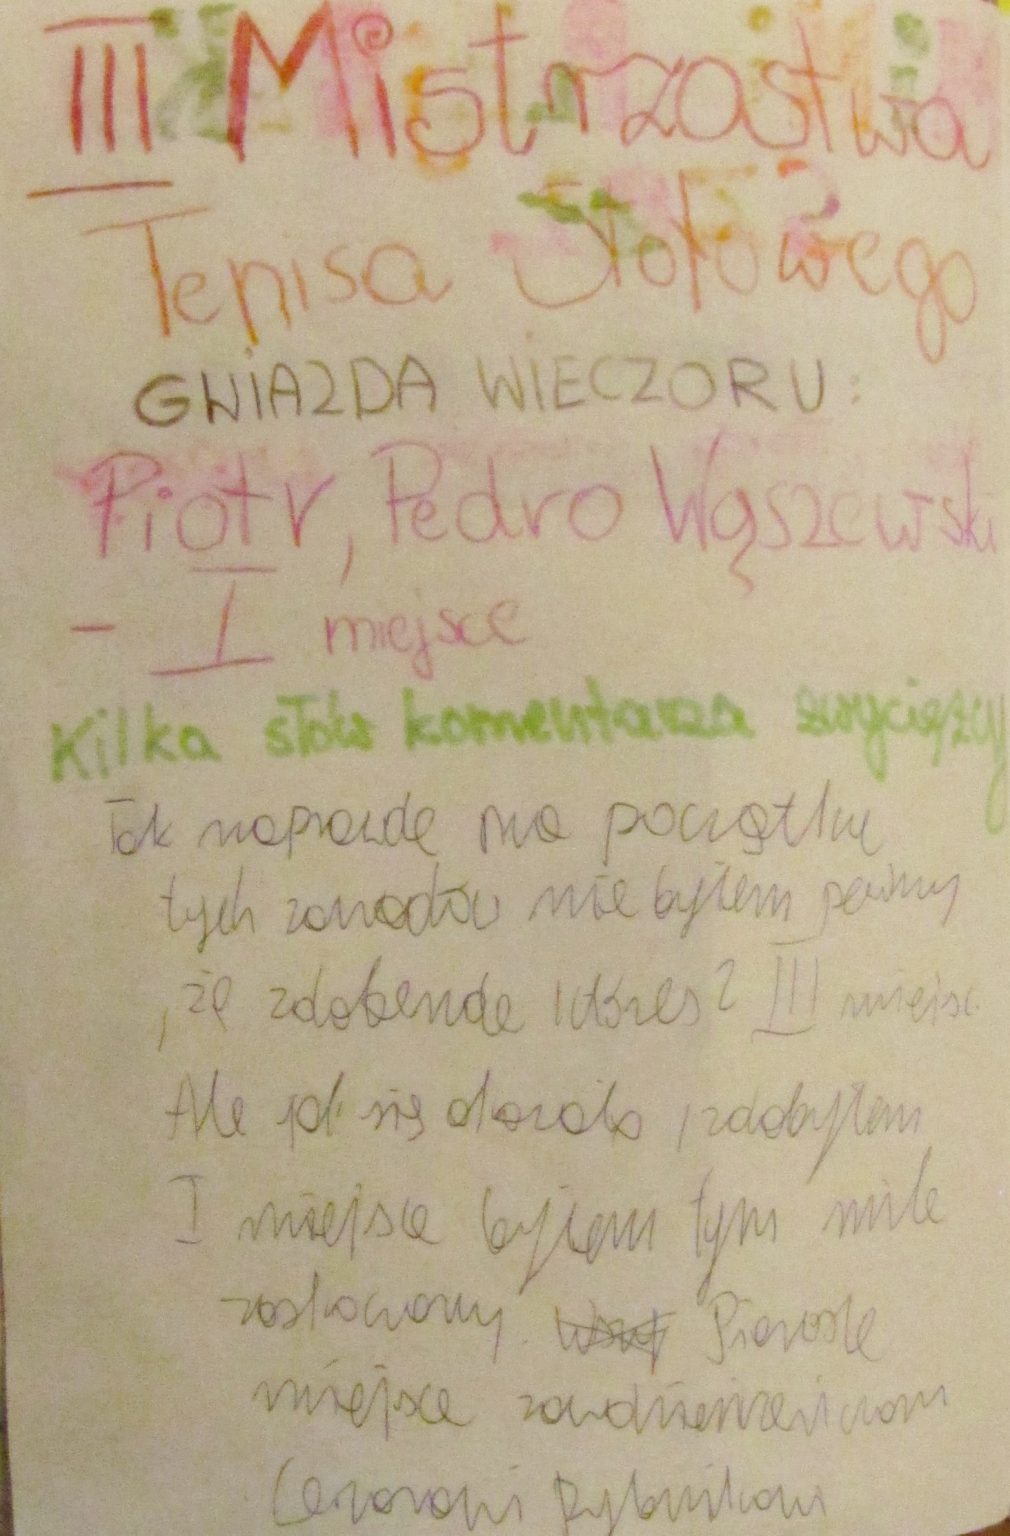 III Mistrzostwa
Tenisa Stołowego
GWIAZDA WIECZORU:
Piotr, Pedro Wąszewski
- I miejsce
Kilka słów komentarza zwycięzcy
Tak naprawdę na początku
tych zawodów nie byłem pewny
, że zdobende III miejsc
Ale jak się okozało, zdobyłem
I miejsce byłem tym mile
zaskoczony. Pierwsze
miejsce
Cezarowi Rybnikowi